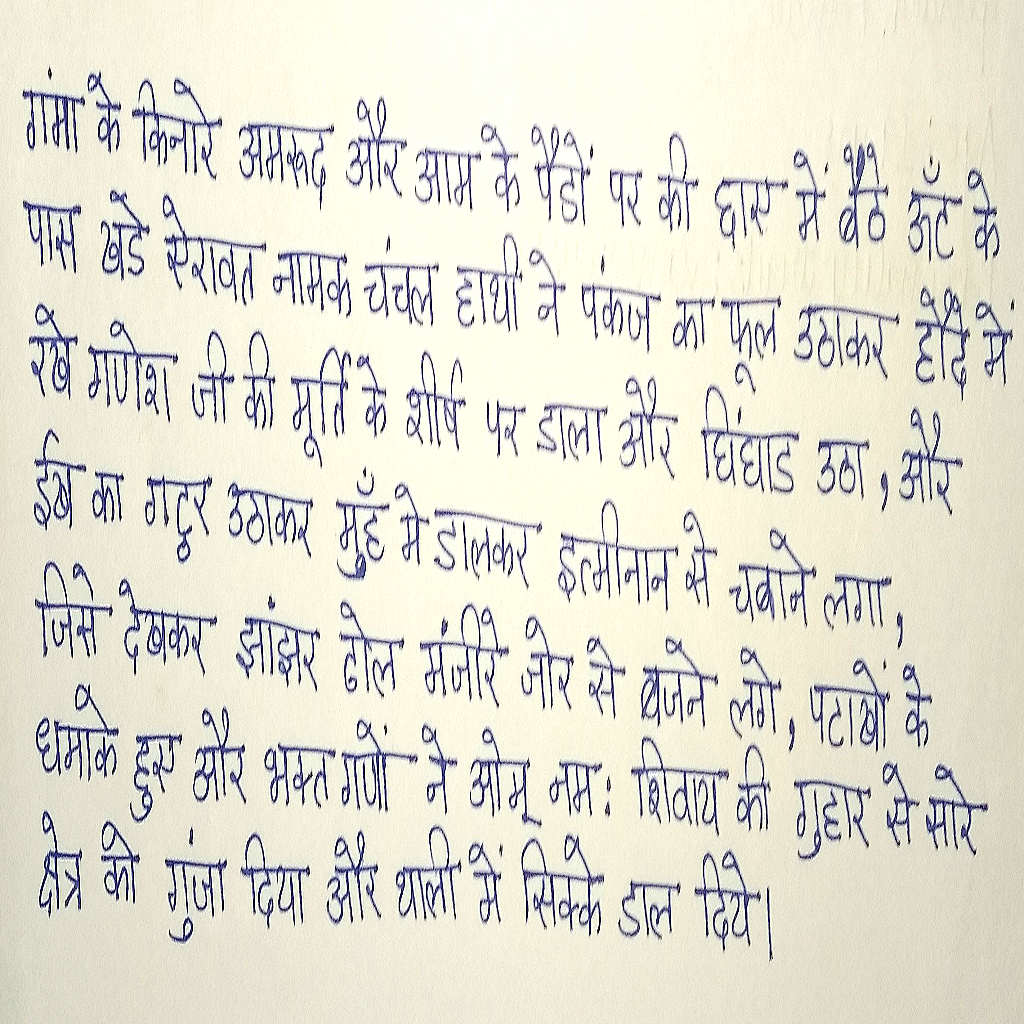 गंगा के किनारे अमरूद और आम के पैडों पर की छाए में बैठे ऊँट के
पास खडे ऐरावत नामक चंचल हाथी ने पंकज का फूल उठाकर हौदे में
रखे गणेश जी की मूर्ति के शीर्ष पर डाला और घिंघाड उठा, और
ईख का गट्ठर उठाकर मुँह मे डालकर इत्मीनान से चबाने लगा,
जिसे देखकर झांझर ढोल मंजीरे जोर से बजने लगे, पटाखों के
धमाके हुए और भक्त गणों ने ओम् नमः शिवाय की गुहार से सारे
क्षेत्र को गुंजा दिया और थाली में सिक्के डाल दिये।